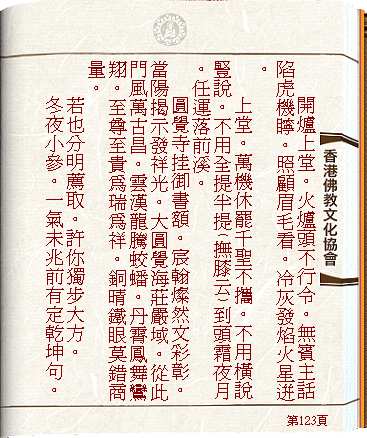 開爐上堂。火爐頭不行令。無賓主話
陷虎機。照顧眉毛看。冷灰發焰火星迸
。
上堂。萬機休罷千聖不攜。不用橫說
豎說。不用全提半提(撫膝云)到頭霜夜月
。任運落前溪。
圓覺寺挂御書額。宸翰燦然文彩彰。
當陽揭示發祥光。大圓覺海莊嚴域。從此
門風萬古昌。雲漢龍騰蛟蟠。丹霄鳳舞鸞
翔。至尊至貴為瑞為祥。銅晴鐵眼莫錯商
量。
若也分明薦取。許你獨步大方。
冬夜小參。一氣未兆前有定乾坤句。
香港佛教文化協會
第123頁